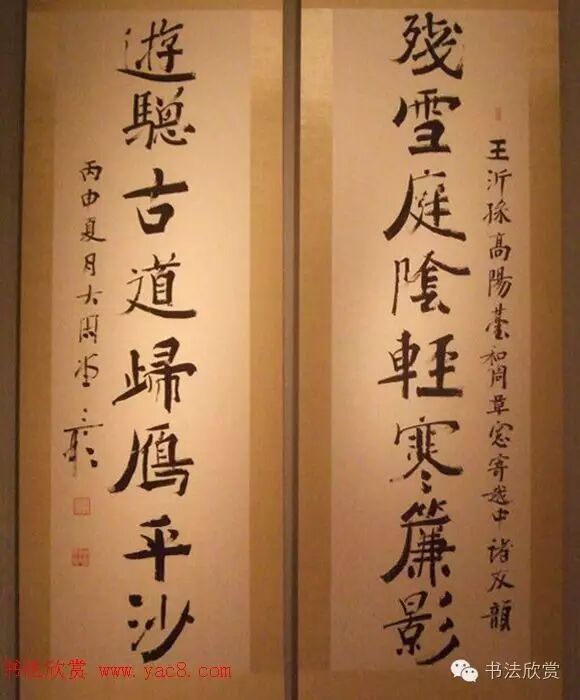 殘雪庭陰輕寒簾影
王沂孫高陽臺和周草窓寄越中諸友韻
遊驄古道歸鴈平沙
丙申夏月大
书法欣赏 www.yac8.com
书法欣赏